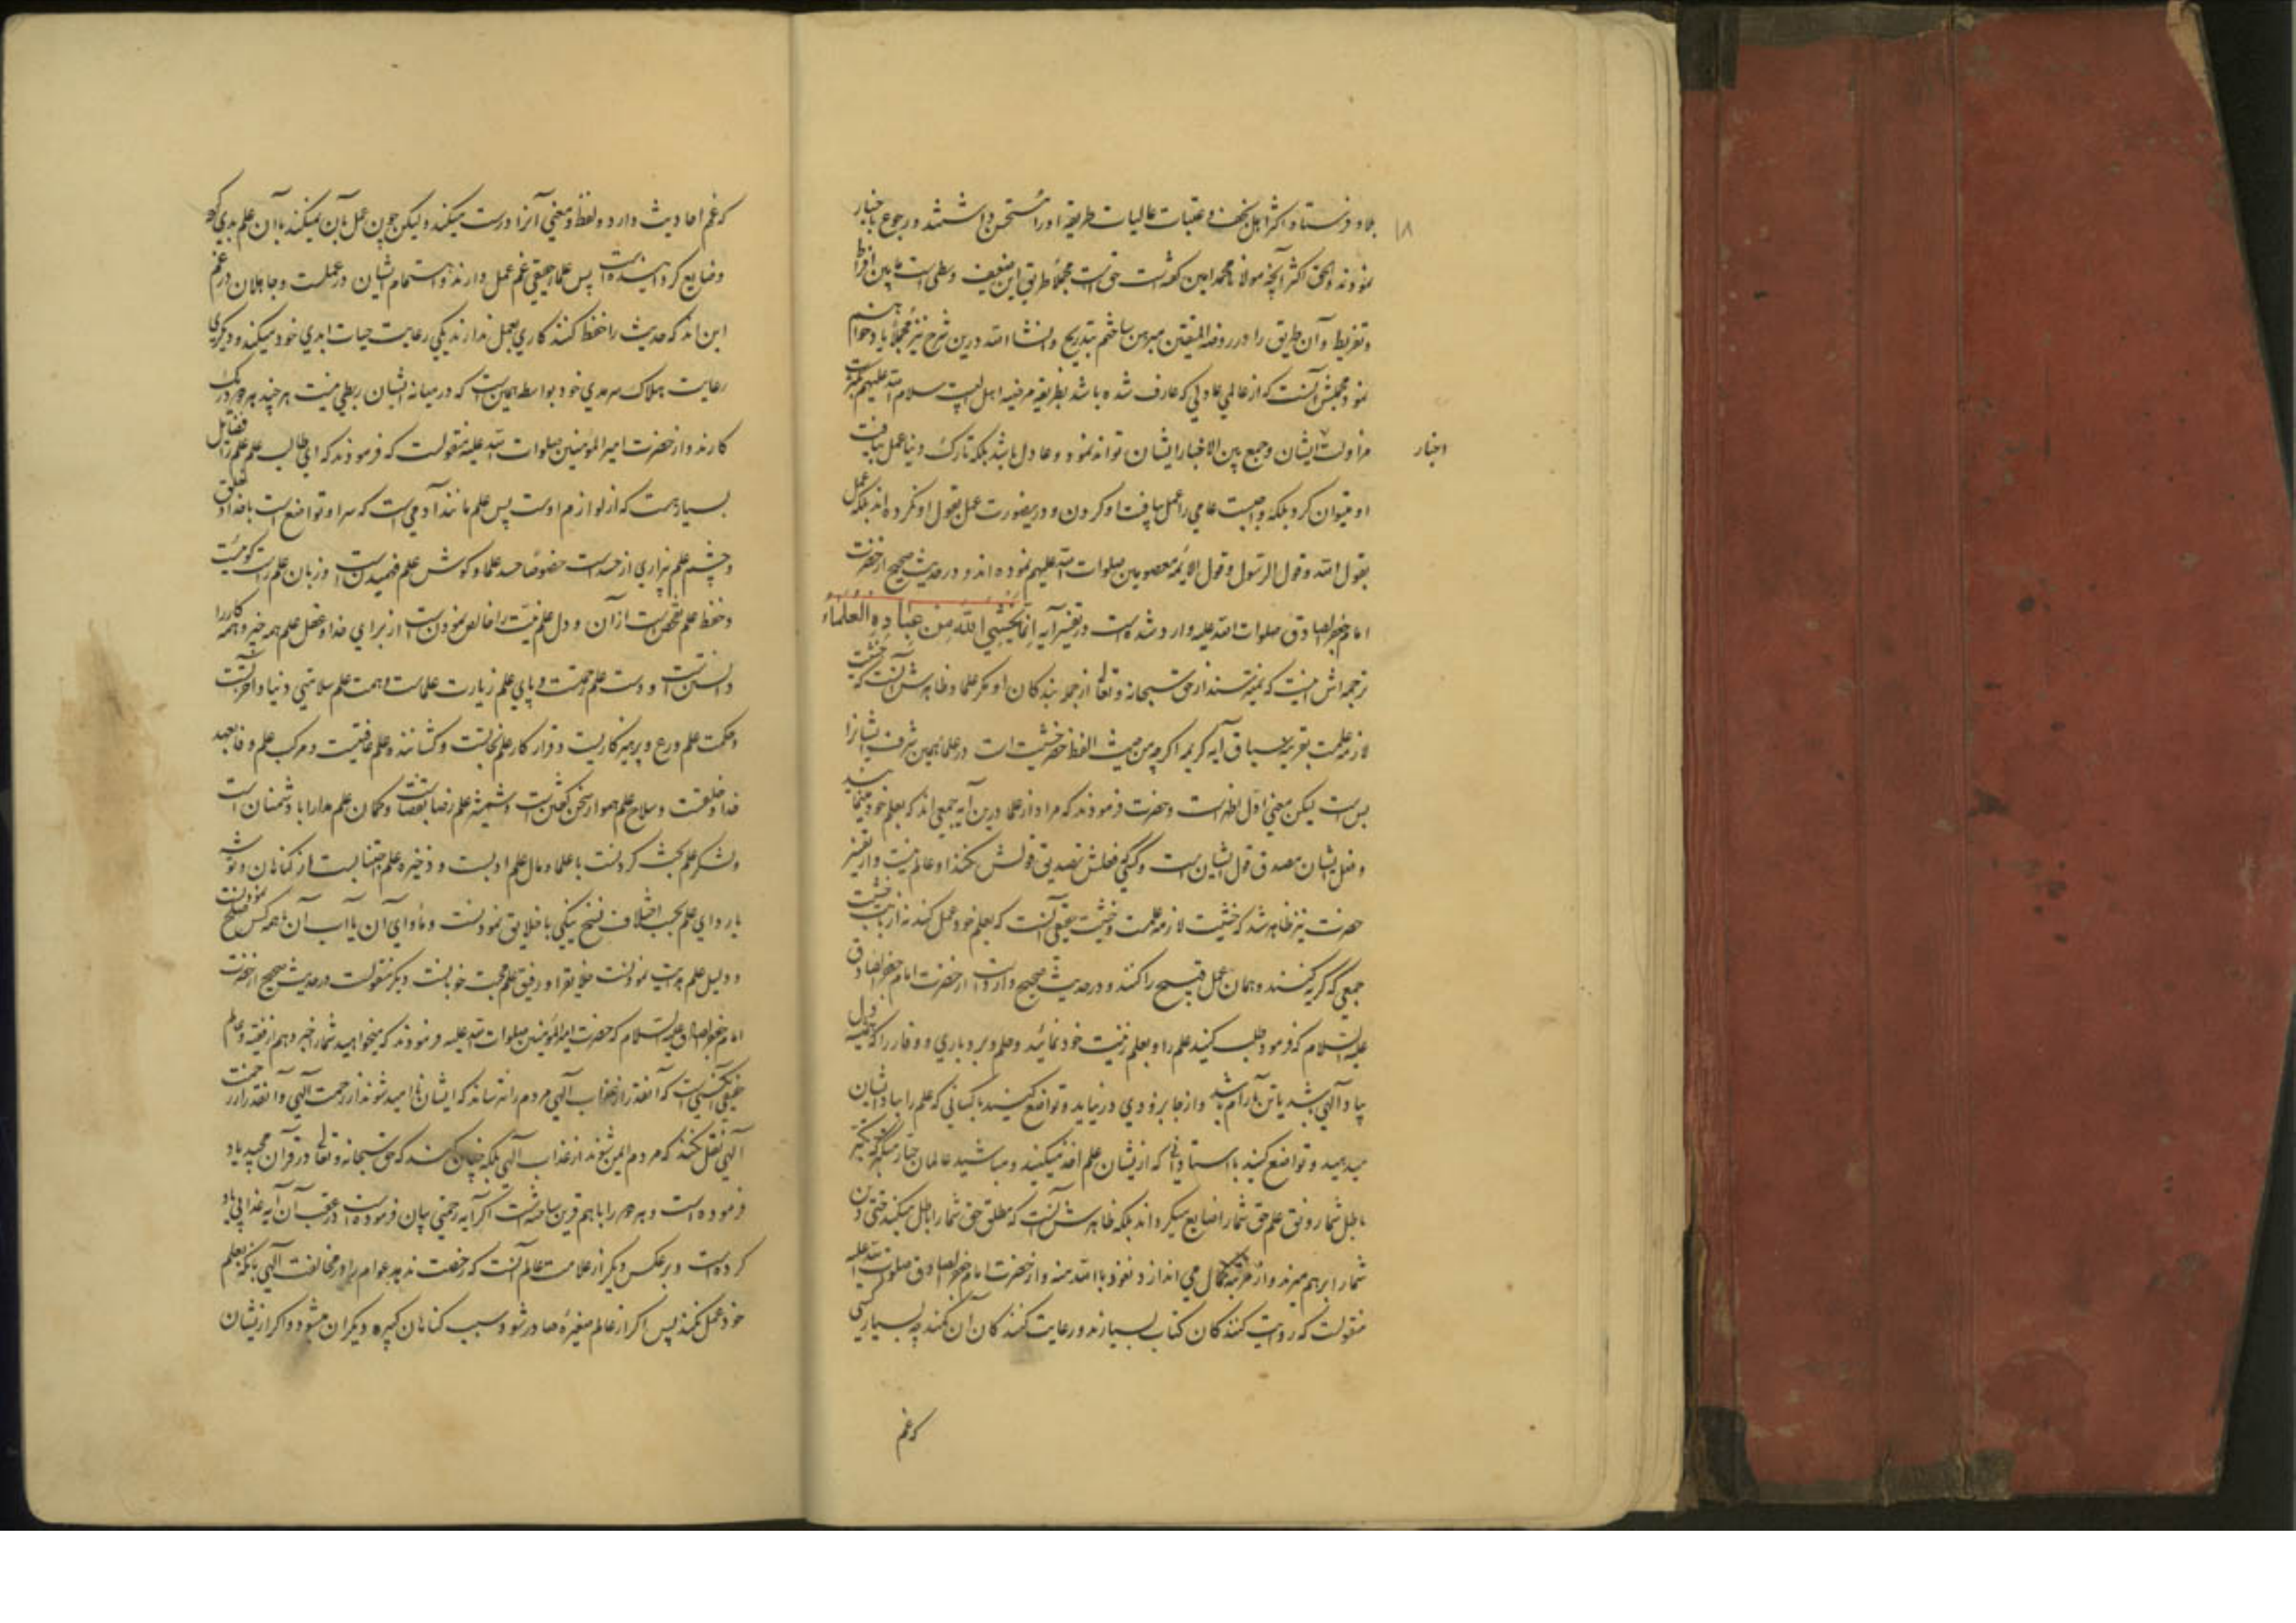 ۱۸
بلاد فرستاد و اکثر اهل نجف و عتبات عالیات طریقه او را مستحسن داشتند و رجوع باخبار
نمودند و الحق اکثر آنچه مولانا محمد امین گفته است حق است مجملا طریق این ضعیف وسطی است مابین افراط
و تفریط و آن طریق را در روضة المتقین مبرهن ساختم بتدریج و انشاء الله درین شرح نیز مجملا یاد خواهم
نمود مجملش آنست که از عالمی عادلی که عارف شده باشد بطریقه مرضیه اهل بیت سلام الله علیهم
مزاولت ایشان و جمع بین الاخبار ایشان تواند نمود و عادل باشد بلکه تارک دنیا عمل بیافت
اخبار
او میتوان کرد بلکه واجبست عامی را عمل بیافت او کردن و درینصورت عمل بقول او نکرده اند بلکه عمل
بقول الله و قول الرسول و قول الائمه معصومین صلوات الله علیهم نموده اند و در حدیث صحیح از حضرت
امام جعفر الصادق صلوات الله علیه وارد شده است در تفسیر آیه انما یخشی الله من عباده العلماء
ترجمه اش اینست که نمیترسند از حق سبحانه و تعالی از جمله بندکان او مکر علما و ظاهرش آنست که خشیت
لازمه علمست بقرینه سیاق آیه کریمه اکرچه من حیث اللفظ حصر خشیت است در علما همین شرف ایشانرا
بس است لیکن معنی اول اظهر است و حضرت فرمودند که مراد از علما درین آیه جمعی اند که بعلم خود
و فعل ایشان مصدق قول ایشان است و کسی که فعلش تصدیق قولش نکند او عالم نیست و از تفسیر
حضرت نیز ظاهر شد که خشیت لازمه علمست و خشیت حقیقی آنست که بعلم خود عمل کند نه از بابت خشیت
جمعی که گریه کنند و همان عمل قبیح را کنند و در حدیث صحیح وارد است از حضرت امام جعفر الصادق
علیه السلام که فرمود طلب کنید علم را و بعلم زینت خود نمائید و حلم و بردباری و وقار را که
بیاد آلهی باشد با آن آرام باشد و از جا بزودی در نیاید و تواضع کنید با کسانی که علم را یاد ایشان
میدهید و تواضع کنید با استادانی که از ایشان علم اخذ میکنید و مباشید عالمان جبار متکبر که
باطل شما رونق علم حق شما را ضایع میکرداند بلکه ظاهرش آنست که مطلق حق شما را باطل میکند حتی دین
شما را برهم میزند و از مرتبه کمال می اندازد نعوذ بالله منه و از حضرت امام جعفر الصادق صلوات الله علیه
منقولست که روایت کنندکان کتاب بسیارند و رعایت کنندکان آن کمند چه بسیار کسی
که غم
که غم احادیث دارد و لفظ و معنی آنرا درست میکند و لیکن چون عمل بآن نمیکند با آن علم بدی کرده
و ضایع کرده است پس علمای حقیقی غم عمل دارند و اهتمام ایشان در عملست و جاهلان در غم
این اند که حدیث را حفظ کنند کاری بعمل ندارند یکی رعایت حیات ابدی خود میکند و دیکری
رعایت هلاک سرمدی خود بواسطه همین است که در میانه ایشان ربطی نیست هر چند هر دو در یک
کارند و از حضرت امیر المؤمنین صلوات الله علیه منقولست که فرمودند که ای طالب علم علم را فضایل
بسیار هست که از لوازم اوست پس علم مانند آدمی است که سر او تواضع است با خدا و خلق
و چشم علم بیزاری از حسد است خصوصا حسد علما و کوش علم فهمیدن است و زبان علم راست کوئیست
و حفظ علم تفحص است از آن و دل علم نیت را خالص نمودن است از برای خدا و عقل علم همه چیز و همه کار را
دانستن است و دست علم رحمت و پای علم زیارت علماست و همت علم سلامتی دنیا و آخرتست
و حکمت علم ورع و پرهیزکاریست و قرارکاه علم نجاتست و کشاننده علم عافیتست و مرکب علم وفا بعهد
خدا و خلقست و سلاح علم هموار سخن کفتن است و شمشیر علم رضا بقضاست و کمان علم مدارا با دشمنان است
و لشکر علم بحث کردنست با علما و مال علم ادبست و ذخیره علم اجتنابست از کناهان و توشه
نیکی با خلایق نمودنست و ماوای آن یا آب آن با همه کس صلح نمودنست
و دلیل علم هدایت نمودنست خلایق را و رفیق علم محبت خوبانست دیکر منقولست در حدیث صحیح از حضرت
امام جعفر الصادق علیه السلام که حضرت امیر المؤمنین صلوات الله علیه فرمودند که میخواهید شما را خبر دهم از فقیه و عالم
حقیقی کسی است که آنقدر از عذاب آلهی مردم را نترساند که ایشان ناامید شوند از رحمت آلهی و آنقدر از رحمت
آلهی نقل نکند که مردم ایمن شوند از عذاب آلهی بلکه چنان کند که حق سبحانه و تعالی در قرآن مجید یاد
فرموده است و هر دو را با هم قرین ساخته است اکر آیه رحمتی بیان فرموده است در عقب آن آیه عذابی یاد
کرده است و برعکس دیکر از علامت عالم آنست که رخصت ندهد عوام را در مخالفت آلهی بآنکه بعلم
خود عمل نکند پس اکر از عالم صغیره صادر شود سبب کناهان کبیره دیکران میشود و اکر از ایشان